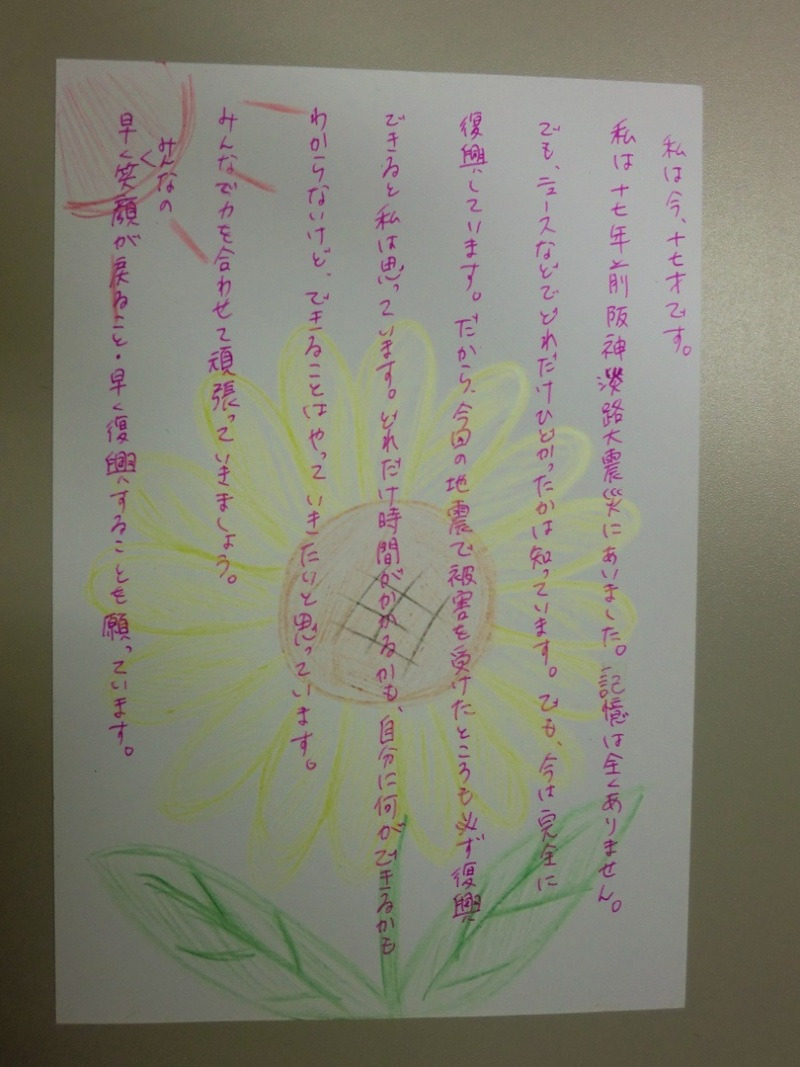 私は今、十七才です。
私は十七年前阪神淡路大震災にあいました。記憶は全くありません。
でも、ニュースなどでどれだけひどかったかは知っています。でも、今は完全に
復興しています。だから、今回の地震で被害を受けたところも必ず復興
できると私は思っています。どれだけ時間がかかるかも、自分に何ができるかも
わからないけど、できることはやっていきたいと思っています。
みんなで力を合わせて頑張っていきましょう。
みんなの
早く笑顔が戻ること・早く復興することを願っています。